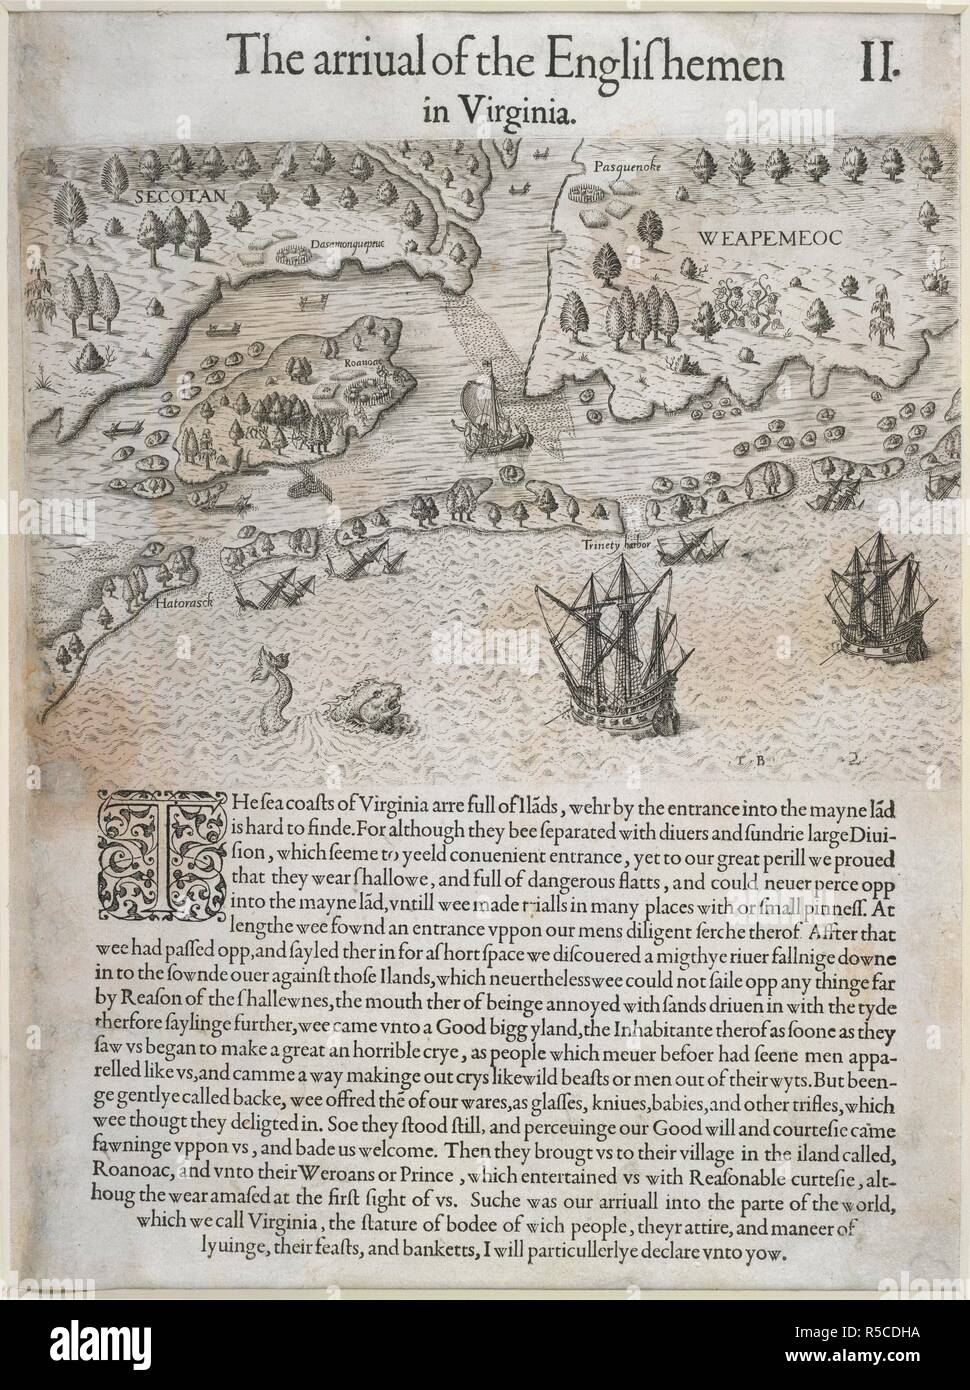 The arriual of the Engliſhemen II.
in Virginia.
Pasquenoke
SECOTAN
WEAPEMEOC
Dasamonquepeuc
Roanoac
Trinety harbor
Hatorasck
T B 2
THe ſea coaſts of Virginia arre full of Ilãds, wehr by the entrance into the mayne lãd
is hard to finde. For although they bee ſeparated with diuers and ſundrie large Diui-
ſion, which ſeeme to yeeld conuenient entrance, yet to our great perill we proued
that they wear ſhallowe, and full of dangerous flatts, and could neuer perce opp
into the mayne lãd, vntill wee made trialls in many places with or ſmall pinneſſ. At
lengthe wee fownd an entrance vppon our mens diligent ſerche therof. Affter that
wee had paſſed opp, and ſayled ther in for aſ hort ſpace we diſcouered a migthye riuer fallnige downe
in to the ſownde ouer againſt thoſe Ilands, which neuertheleſſ wee could not ſaile opp any thinge far
by Reaſon of the ſhallewnes, the mouth ther of beinge annoyed with ſands driuen in with the tyde
therfore ſaylinge further, wee came vnto a Good bigg yland, the Inhabitante therof as ſoone as they
ſaw vs began to make a great an horrible crye, as people which meuer befoer had ſeene men appa-
relled like vs, and camme a way makinge out crys like wild beaſts or men out of their wyts. But been-
ge gentlye called backe, wee offred thẽ of our wares, as glaſſes, kniues, babies, and other trifles, which
wee thougt they deligted in. Soe they ſtood ſtill, and perceuinge our Good will and courteſie came
fawninge vppon vs, and bade us welcome. Then they brougt vs to their village in the iland called,
Roanoac, and vnto their Weroans or Prince, which entertained vs with Reaſonable curteſie, alt-
houg the wear amaſed at the firſt ſight of vs. Suche was our arriuall into the parte of the world,
which we call Virginia, the ſtature of bodee of wich people, theyr attire, and maneer of
lyuinge, their feaſts, and banketts, I will particullerlye declare vnto yow.
alamy
Image ID: R5CDHA
www.alamy.com